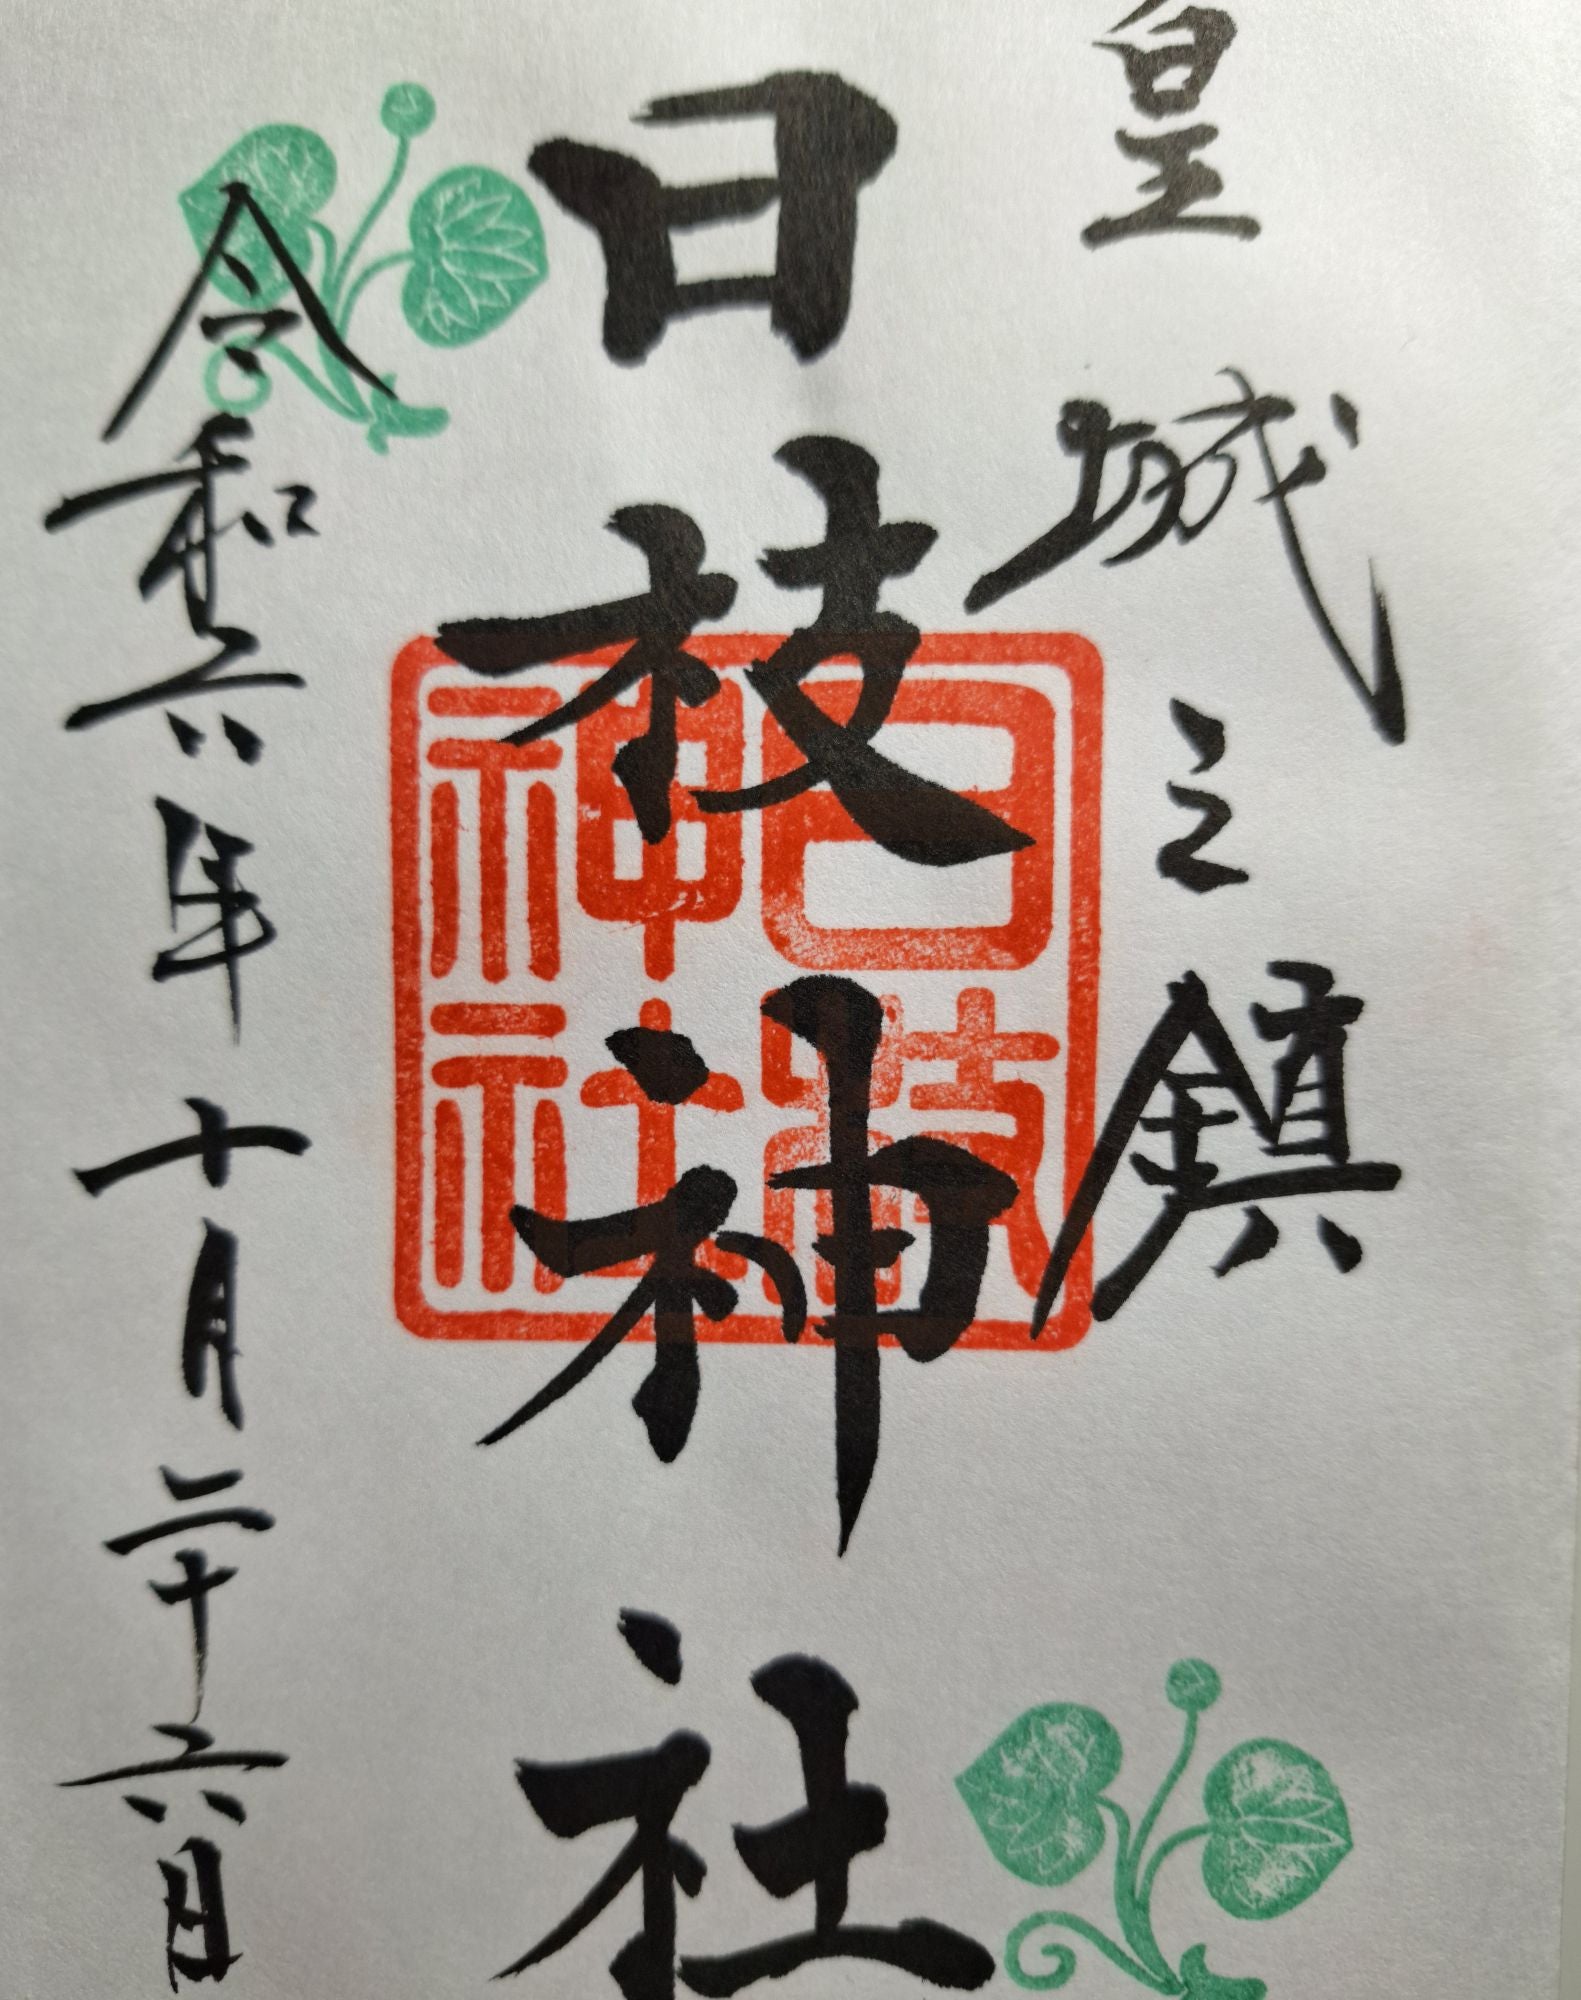 皇城之鎮
日枝神社
日枝神社
令和六年十月二十六日